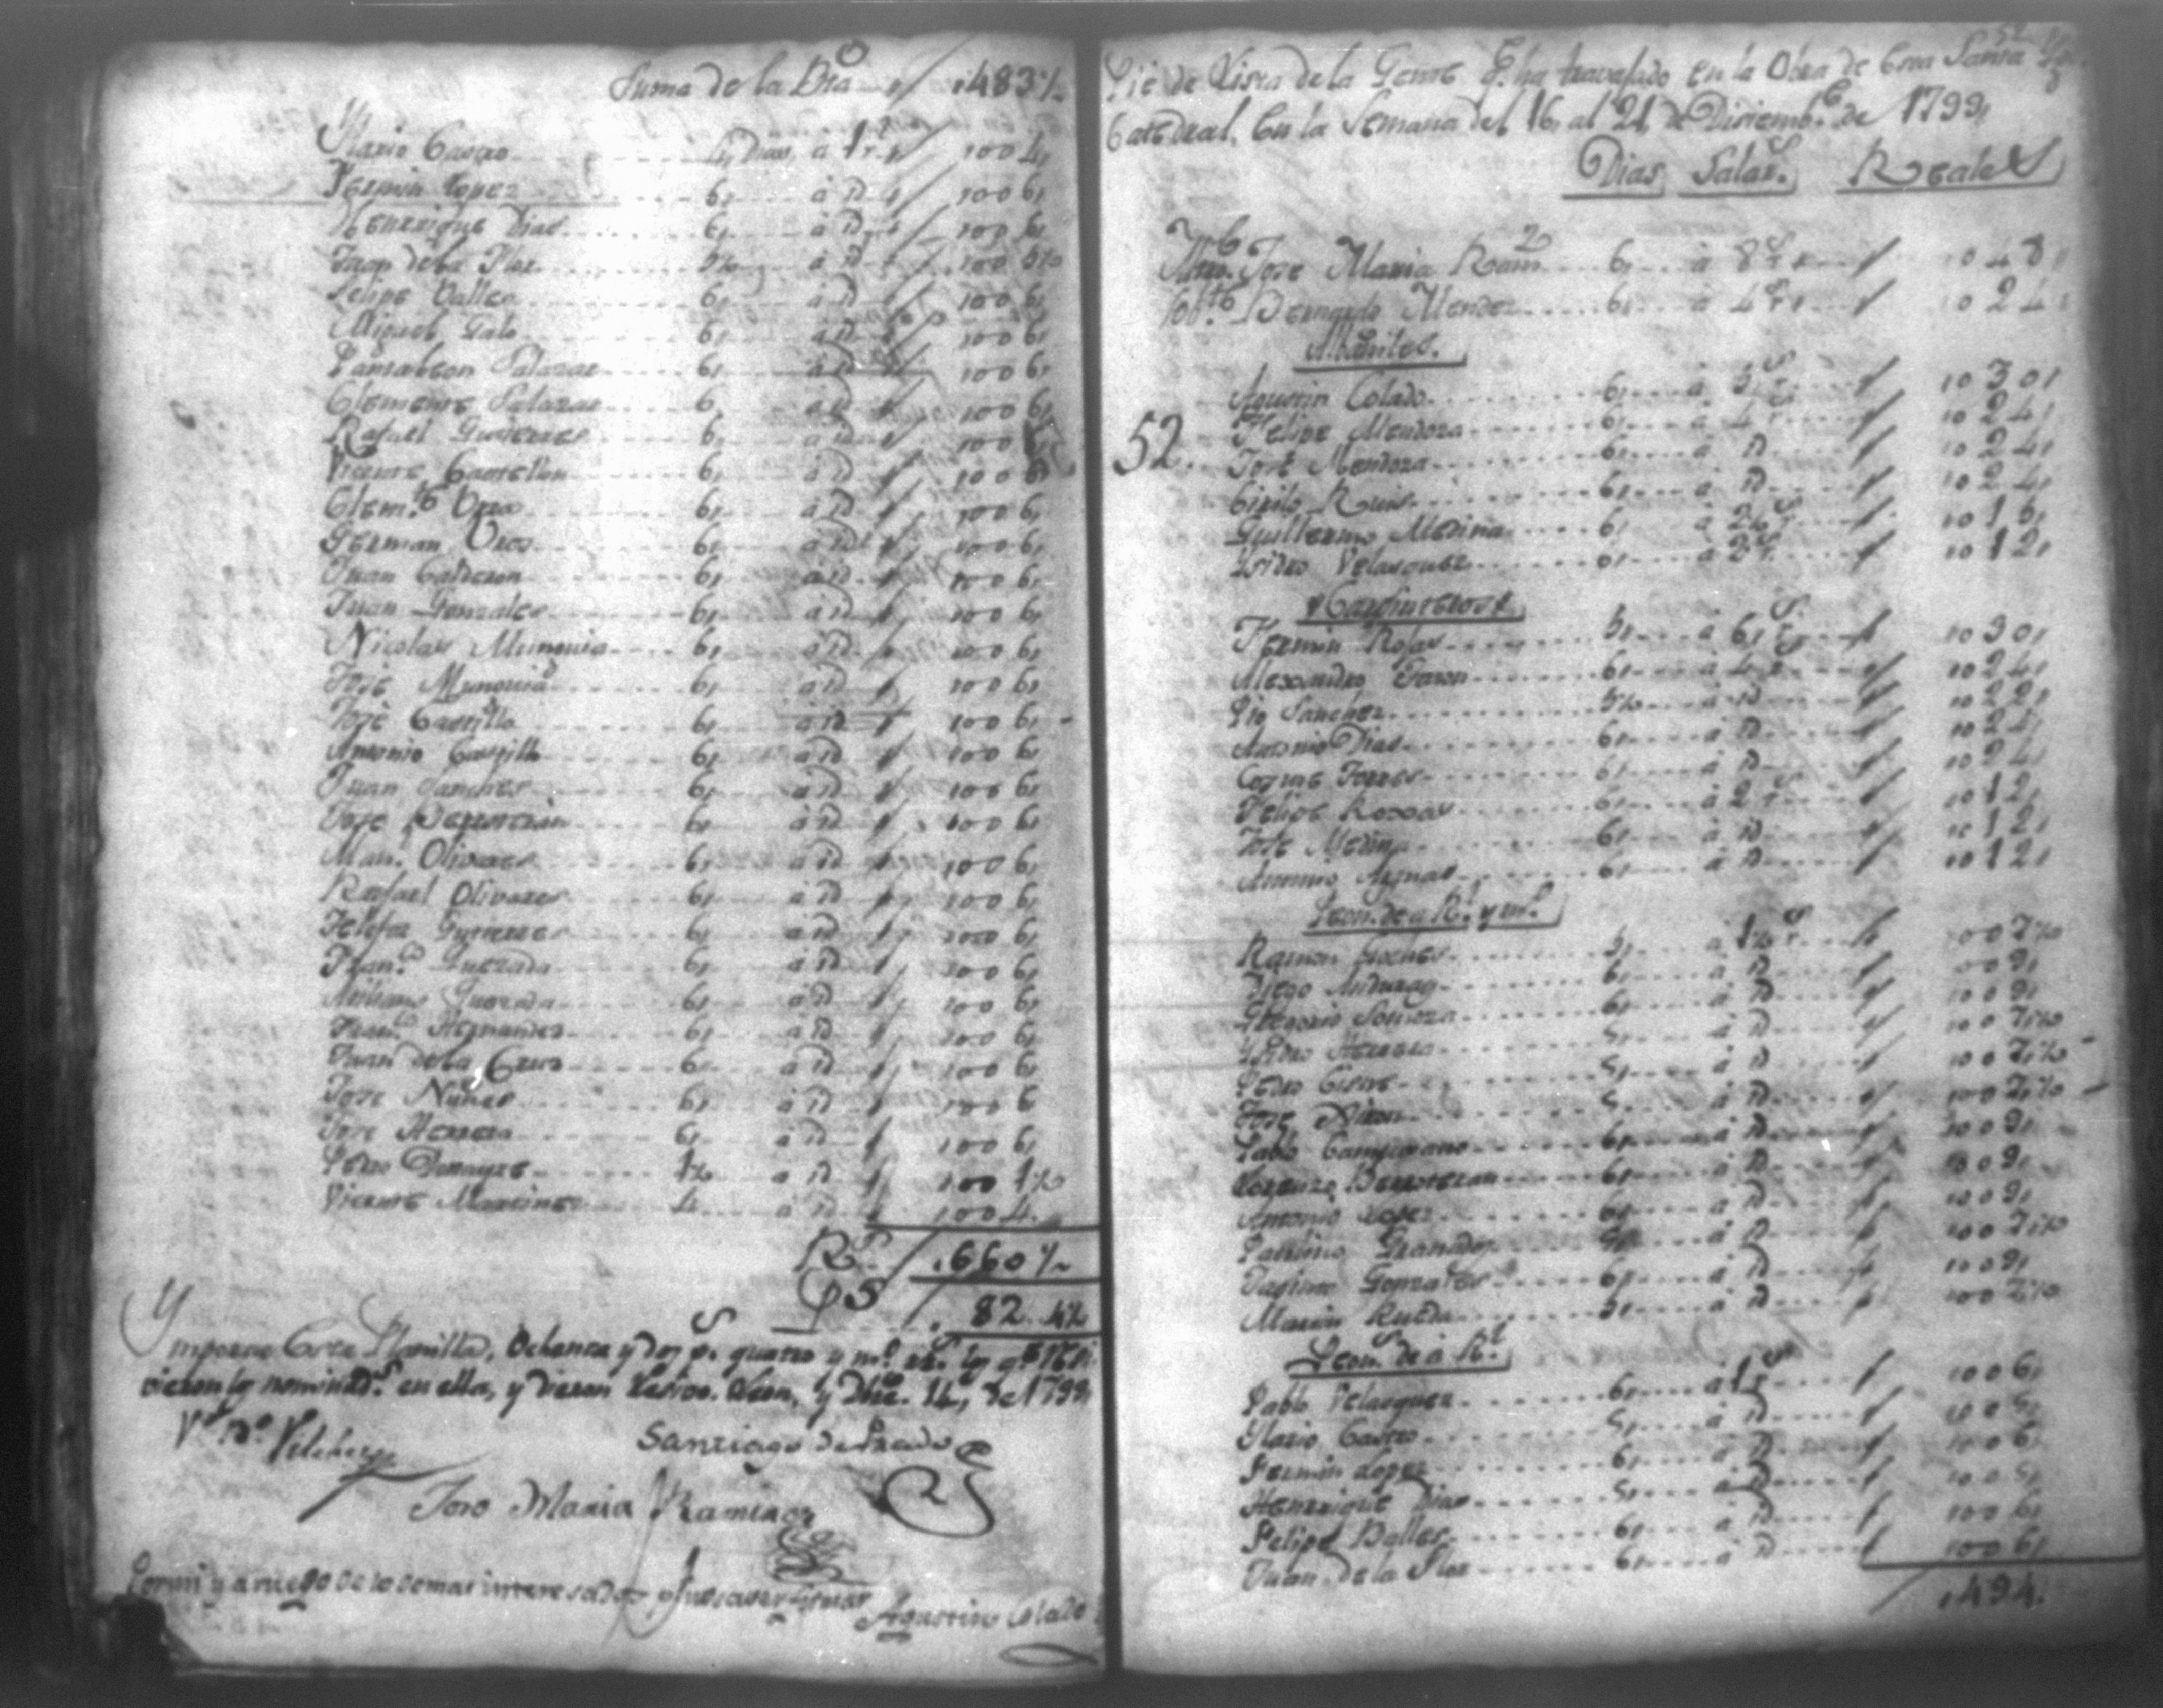 Suma de la Bta // .483½
Ylario Castro 4, Dias, a 1 r. // 100 4,
Fermin Lopez 6, a id // 100 6,
Henrrique Dias 6, a id // 100 6,
Juan de la Flor 5½ a id // 100 5½
Felipe Valles 6, a id // 100 6,
Miguel Galo 6, a id // 100 6,
Pantaleon Salazar 6, a id // 100 6,
Clemente Salazar 6, a id // 100 6,
Rafael Gutierres 6, a id // 100 6,
Vicente Castellon 6, a id // 100 6,
Clem.te 6, a id // 100 6,
German 6, a id // 100 6,
Juan Calderon 6, a id // 100 6,
Juan Gonzales 6, a id // 100 6,
Nicolas Munguia 6, a id // 100 6,
Jose Munguia 6, a id // 100 6,
Jose Castillo 6, a id // 100 6,
Antonio Castillo 6, a id // 100 6,
Juan Sanches 6, a id // 100 6,
Jose Berroteran 6, a id // 100 6,
Man.l Olivares 6, a id // 100 6,
Rafael Olivares 6, a id // 100 6,
Gutierres 6, a id // 100 6,
Fran.co Quezada 6, a id // 100 6,
Quezada 6, a id // 100 6,
Fran.co Hernandes 6, a id // 100 6,
Juan de la Cruz 6, a id // 100 6,
Jose Nuñes 6, a id // 100 6
Jose Herrera 6, a id // 100 6,
Pedro 1½ a id // 100 1½
Vicente Martines 4. a id // 100 4.
R.s .660½
P.s 82. 4½
Ymporta Esta Planilla, Ochenta y dos p.s quatro y m.o rr.s los q.e reci-
vieron los nominad.s en ella, y dieron Recivo. Leon, y Dbre. 14, de 1799,
V.o B.o Vilchez
Santiago de Prado
Jose Maria Ramires
Por mi y a ruego de lo demas interesados q.e no saven firmar
Agustin Colado
52
Pie de Lista de la Gente q.e ha travajado en la Obra de Esta Santa Ygl.a
Catedral, En la Semana del 16, al 21, de Diciemb.e de 1799,
Dias, Salar.s Reales
Mro. Jose Maria Ram.z 6, a 8 r.s // 10 4 8,
Sob.te Bernardo Mendez 6, a 4 r.s // 10 2 4,
Albañiles.
Agustin Colado 6, a 5 r.s // 10 3 0,
52. Felipe Mendoza 6, a 4 // 10 2 4,
Jose Mendoza 6, a id // 10 2 4,
Cirilo Ruis 6, a id // 10 2 4,
Guillermo Medina 6, // 10 1
Ysidro Velasquez 6, a 2 r.s // 10 1 2,
Carpinteros
Fermin Rojas 5, a 6, r.s // 10 3 0,
Alexandro 6, a 4 r // 10 2 4,
Pio Sanchez 5½ a id // 10 2 2,
Antonio Dias 6, a id // 10 2 4,
Cosme Torres 6, a id // 10 2 4,
Felipe 6, a 2 r.s // 10 1 2,
Jose Medina 6, a id // 10 1 2,
Antonio 6, a id // 10 1 2,
Peon.s de a R.l y m.o
Ramon 5, a 1½ r.s // 100 7½
Diego Anduray 6, a id // 100 9,
Gregorio Somoza 6, a id // 100 9,
Ysidro Herrera 5, a id // 100 7½
Pedro 5, a id // 100 7½
Jose 5, a id // 100 7½
Pablo Campusano 6, a id // 100 9,
Lorenzo Berroteran 6, a id // 100 9,
Antonio Lopez 6, a id // 100 9,
Paulino Granados 5, a id // 100 7½
Gonzales 6, a id // 100 9,
Rueda 5, a id // 100 7½
Peon.s de a R.l
Pablo Velasquez 6, a 1 r // 100 6,
Ylario Castro 5, a id // 100 5,
Fermin Lopez 6, a id // 100 6,
Henrrique Dias 5, a id // 100 5,
Felipe Valles 6, a id // 100 6,
Juan de la Flor 6, a id // 100 6,
.494.